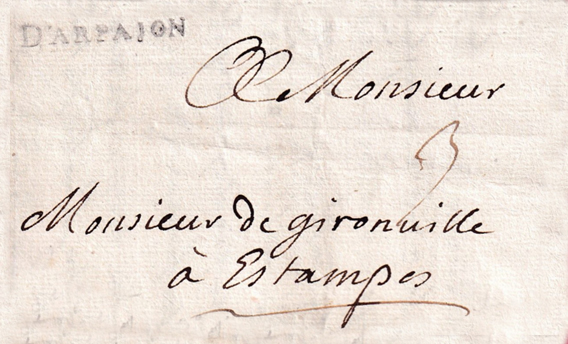 D'ARPAJON
A Monsieur
3
Monsieur de gironville
à Estampes